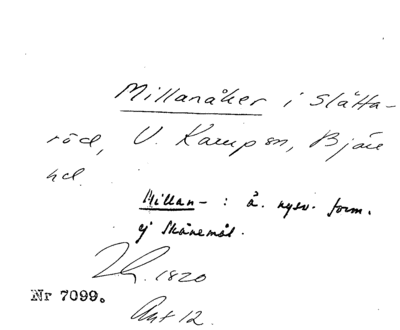 Millanåker i Slätta-
röd, V. Karup sn, Bjäre
hd.
Millan- : å. nysv. form.
ej Skånemål.
1820
Nr 7099.
Avt 12.